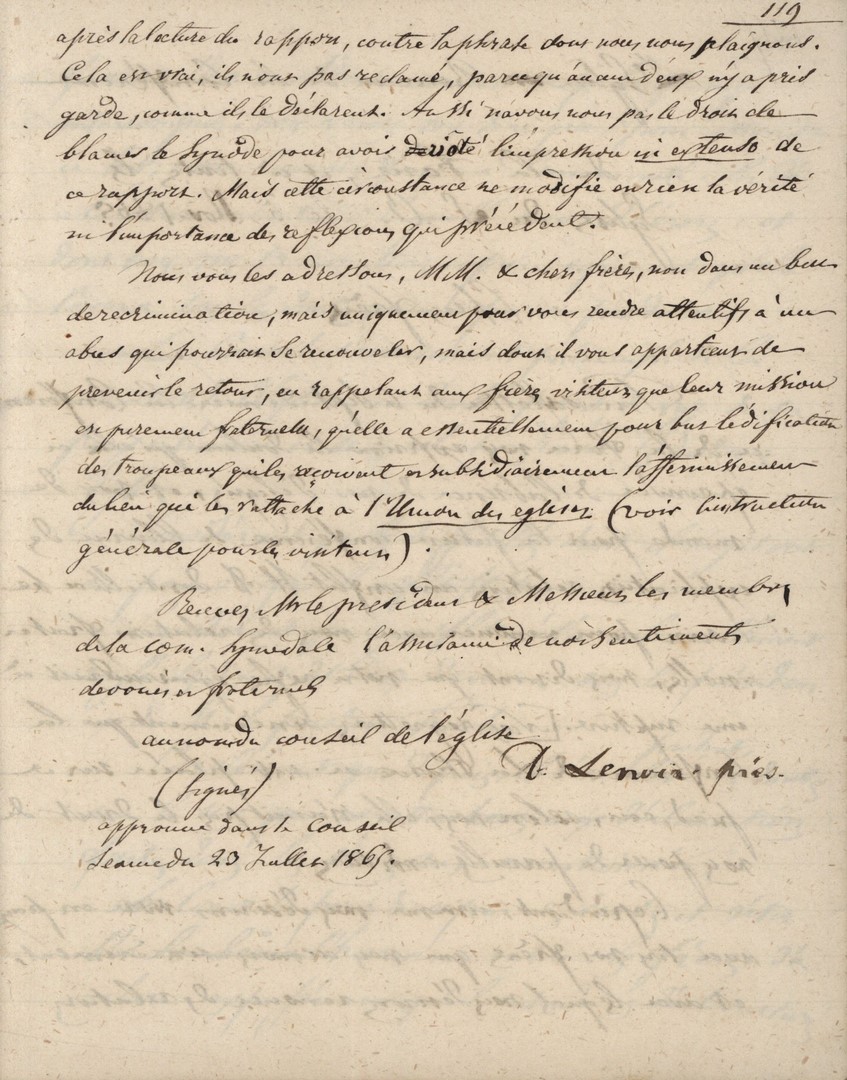 119
après la lecture du rapport, contre la phrase dont nous nous plaignons.
Cela est vrai, ils n'ont pas reclamé, parce qu'aucun d'eux n'y a pris
garde, comme ils le déclarent. Aussi n'avons nous pas le droit de
blamer le Synode pour avoir voté l'impression in extenso de
ce rapport. Mais cette circonstance ne modifie en rien la vérité
ni l'importance des reflexions qui précédent.
Nous vous les adressons, MM. & chers frères, non dans un but
de recrimination, mais uniquement pour vous rendre attentifs à un
abus qui pourrait se renouveler, mais dont il vous appartient de
prevenir le retour, en rappelant aux frères visiteurs que leur mission
est purement fraternelle, qu'elle a essentiellement pour but l'édification
des troupeaux qui les reçoivent et subsidiairement l'affermissement
du lien qui les rattache à l'Union des eglises (voir l'instruction
générale pour les visiteurs).
Recevez Mr le president & Messieurs les membres
de la com. Synodale l'assurance de nos sentiments
devoués et fraternels
au nom du conseil de l'église
D. Lenoir. prés.
(signé)
approuvé dans le Conseil
Seance du 23 Juillet 1865.